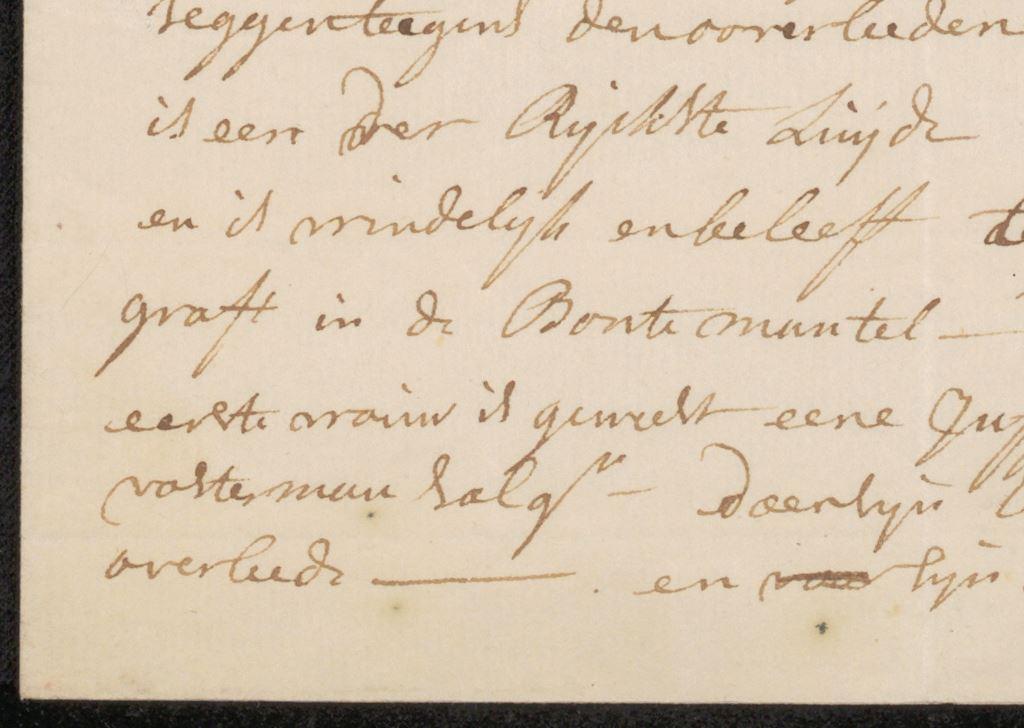 seggen teegens den ooverleeden
is een der Ryckste Luijde
en is vrindelijk en beleeff
graft in de Bonte mantel —
eerste vrouw is geweest eene Juff
vosterman salgr — Daer sijn
overleede —— . en sijn